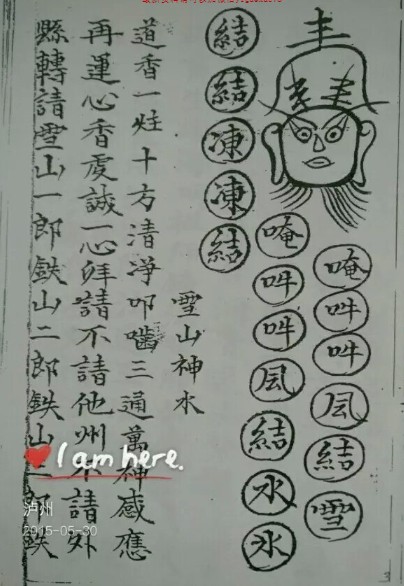 唵吽吽凨結雪
唵吽吽凨結水氷
結結凍凍結
雪山神水
道香一炷十方清凈叩嚙三通萬神感應
再運心香虔誠一心拜請不請他州不請外
縣轉請雪山一郎鉄山二郎鉄山三郎鉄
I am here.
泸州
2015-05-30
3